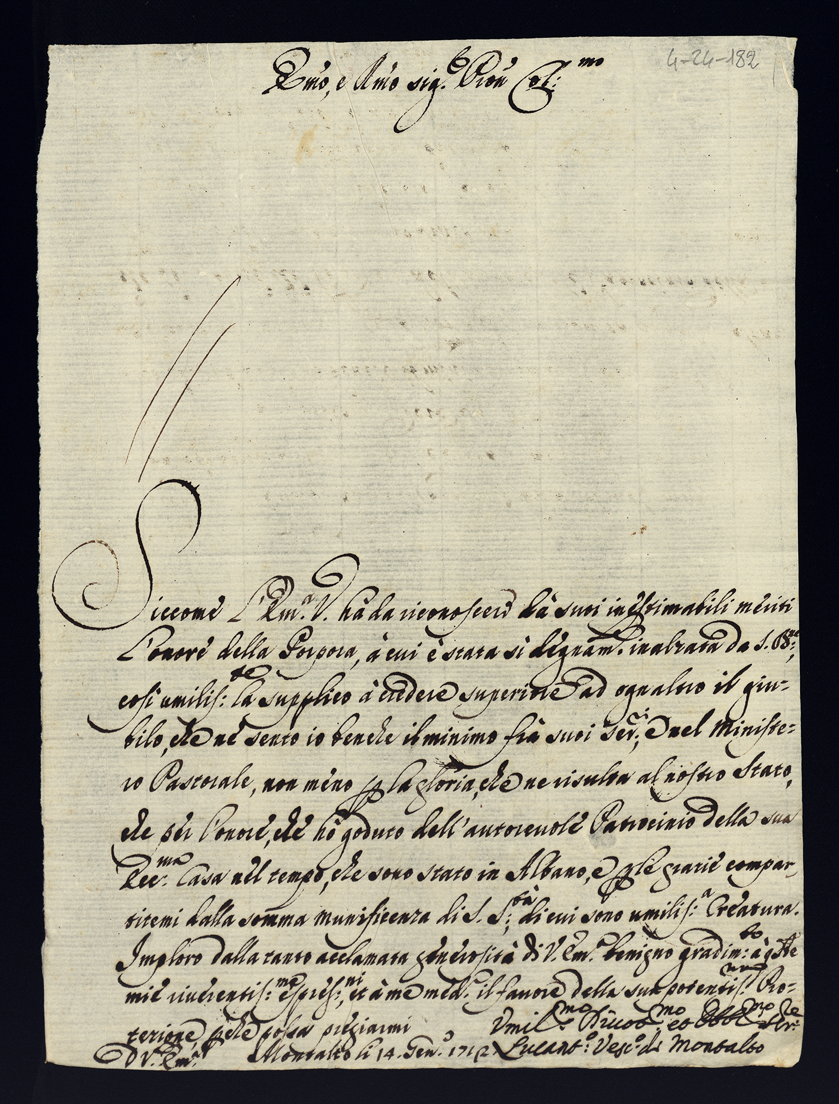 4-24-182
Emo, e Rmo sig.re Pron Col:mo
Siccome l'Em.a V. hà da riconoscere dà suoi inestimabili meriti
l'onore della Porpora, à cui è stata sì degnam.te inalzata da S. B.ne,
così umilis:te la supplico à credere superiore ad ogn'altro il giu-
bilo, che ne sento io benche il minimo frà suoi Ser.ri, e nel Ministe-
ro Pastorale, non meno p la gloria, che ne risulta al nostro Stato,
che per l'onore, che hò goduto dell'autorevole Patrocinio della sua
Ecc.ma Casa nel tempo, che sono stato in Albano, e p le grazie compar-
titemi dalla somma munificenza di S. S.tà, di cui sono umilis.a Creatura.
Imploro dalla tanto acclamata generosità di V. Em.a benigno gradim:to à q.ste
mie riverentis:me espres:ni, et à me med.o il favore della sua potentis.ma Pro-
tezione, perche possa pregiarmi
D V.a Em.a Montalto li 14. Gen.o 1712
Umil.mo Divot.mo et Obbl.mo Ser.re
Lucant.o Vesc.o di Montalto